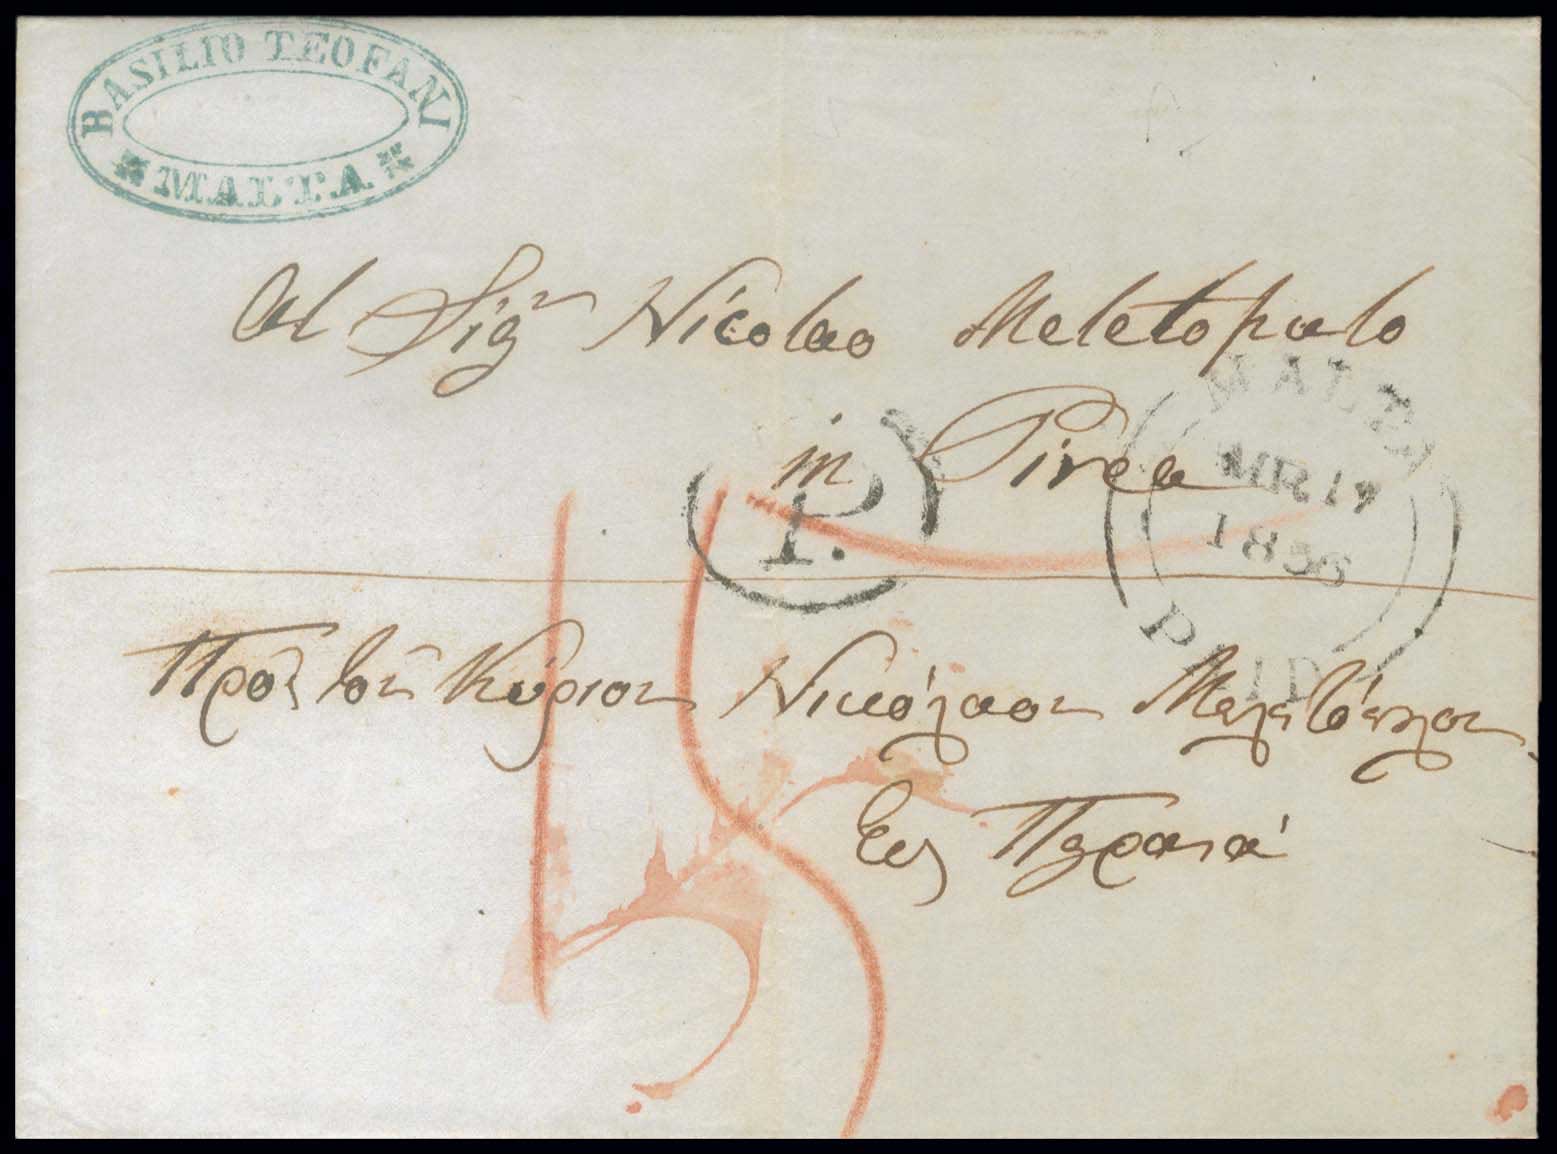 BASILIO TEOFANI
MALTA
Al Sigr Nicolao Meletopulo
in Pirea
MALTA
MR 17
1856
PAID
P.
15
Πρὸς τὸν Κύριον Νικόλαον Μελετόπουλον
Εἰς Πειραιᾶ